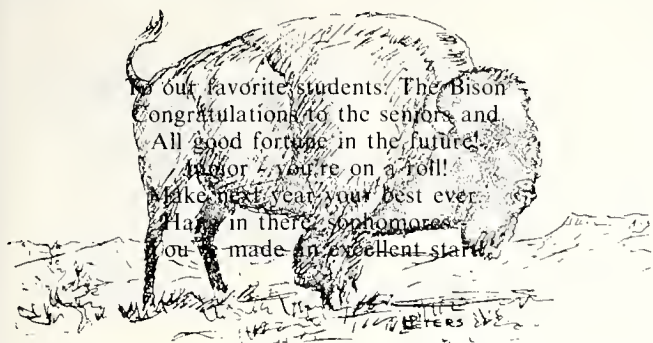 To our favorite students: The Bison
Congratulations to the seniors and
All good fortune in the future!
Junior - you're on a roll!
Make next year your best ever.
Hang in there, sophomores
made an excellent start!
PETERS